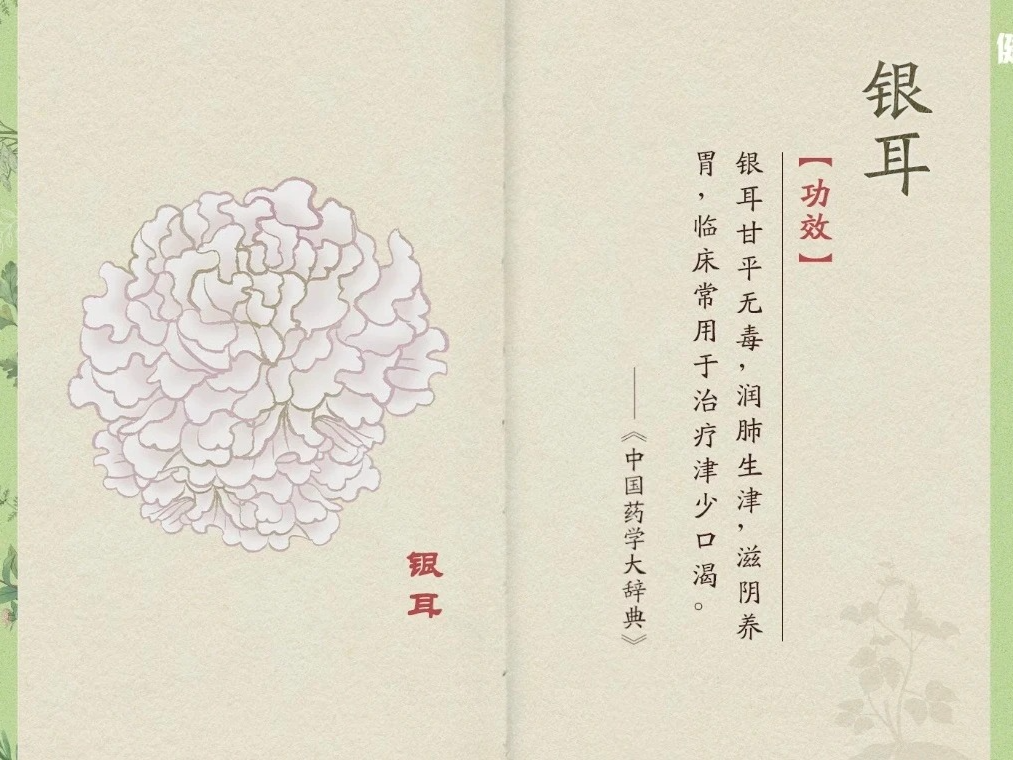 银耳
【功效】
银耳甘平无毒,润肺生津,滋阴养
胃,临床常用于治疗津少口渴。
——《中国药学大辞典》
银耳